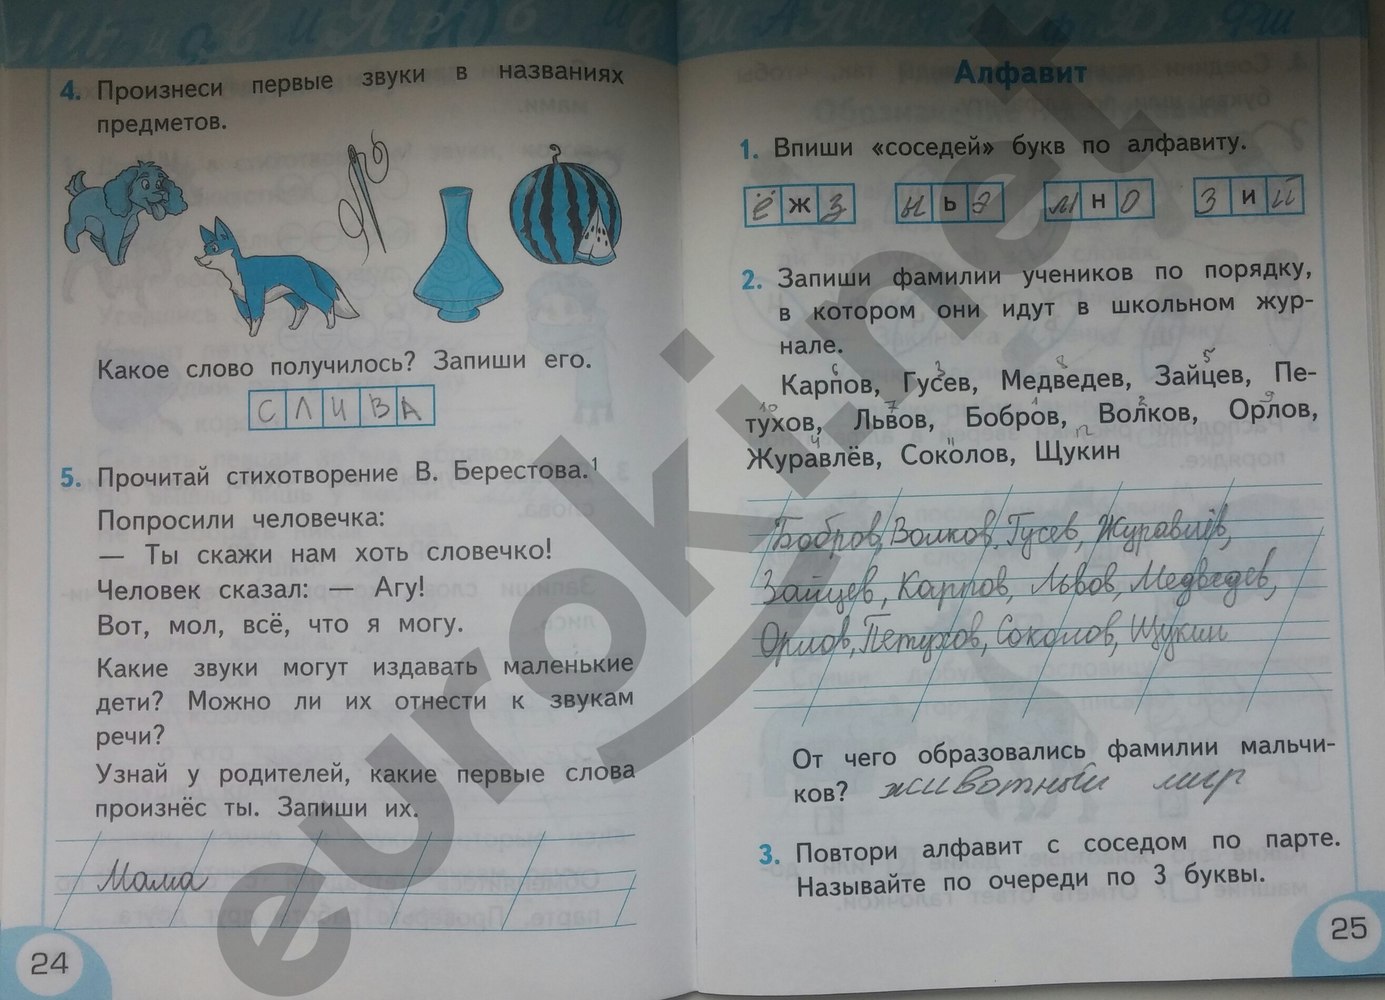 4. Произнеси первые звуки в названиях
предметов.
Какое слово получилось? Запиши его.
СЛИВА
5. Прочитай стихотворение В. Берестова.1
Попросили человечка:
— Ты скажи нам хоть словечко!
Человек сказал: — Агу!
Вот, мол, всё, что я могу.
Какие звуки могут издавать маленькие
дети? Можно ли их отнести к звукам
речи?
Узнай у родителей, какие первые слова
произнёс ты. Запиши их.
Мама
24
Алфавит
1. Впиши «соседей» букв по алфавиту.
ё ж з ы ь э м н о з и й
2. Запиши фамилии учеников по порядку,
в котором они идут в школьном жур-
нале.
6 3 8 5
Карпов, Гусев, Медведев, Зайцев, Пе-
10 7 1 2 9
тухов, Львов, Бобров, Волков, Орлов,
4 11 12
Журавлёв, Соколов, Щукин
Бобров, Волков, Гусев, Журавлёв,
Зайцев, Карпов, Львов, Медведев,
Орлов, Петухов, Соколов, Щукин
От чего образовались фамилии мальчи-
ков? животный мир
3. Повтори алфавит с соседом по парте.
Называйте по очереди по 3 буквы.
25
euroki.net